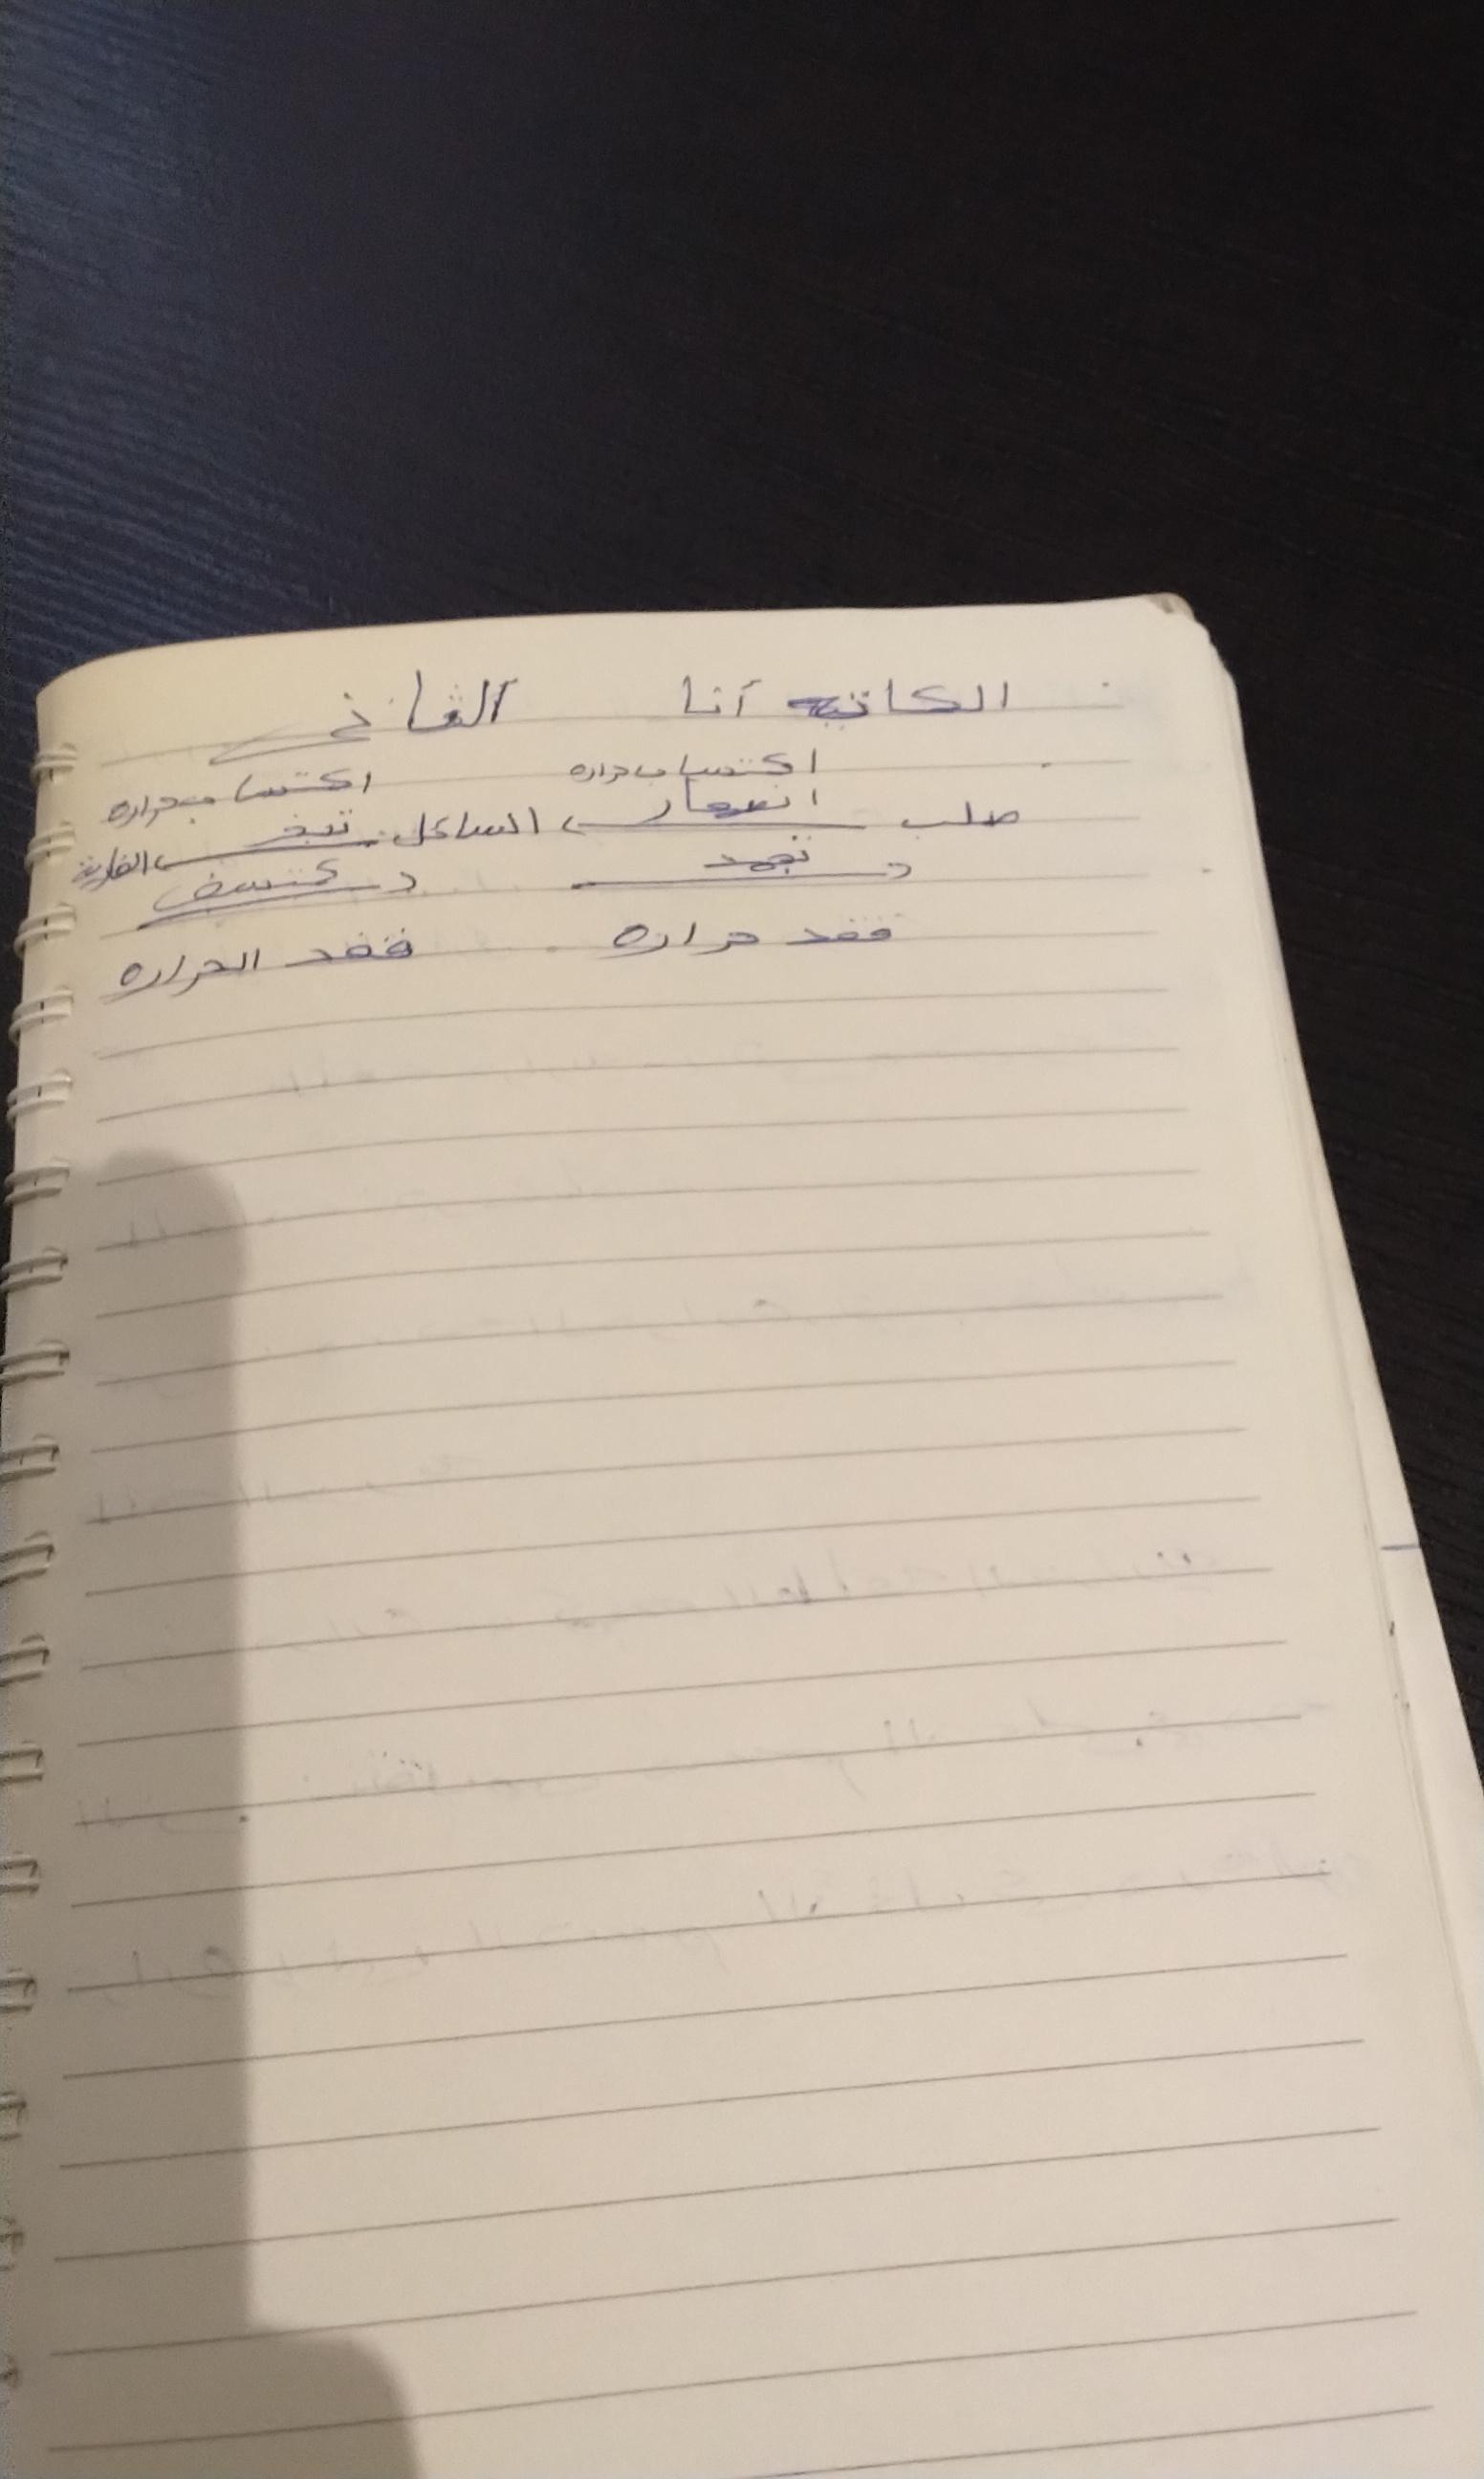 الكاتبه أنا
اكتساب حراره اكتساب حراره
صلب انصهار السائل تبخر الغازية
تجمد تكثيف
فقد حراره فقد الحراره